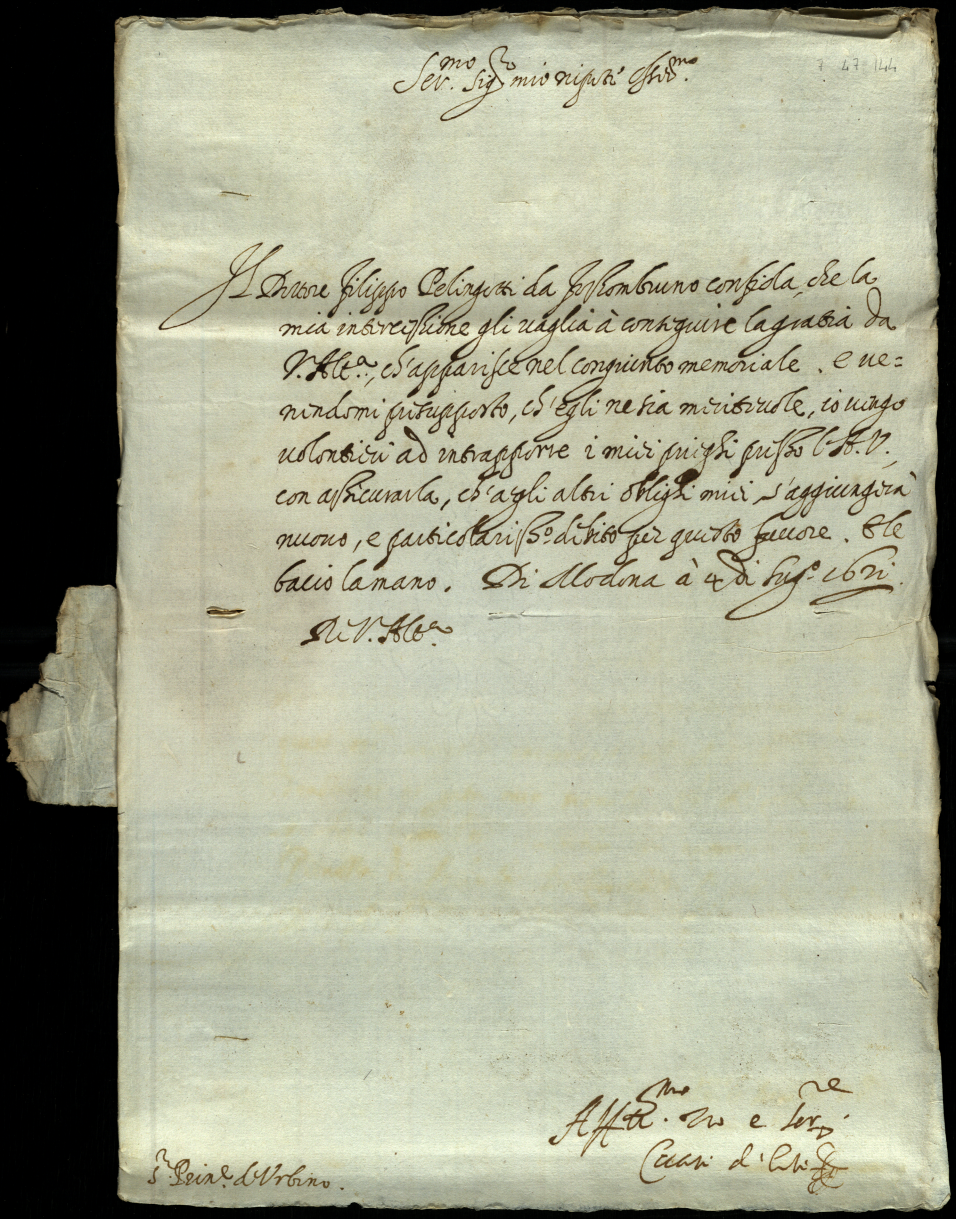 7 47 144
Ser.mo Sig.ro mio nipote Oss.mo
Il Dottore Filippo Pelingotti da Fossombruno confida, che la
mia intercessione gli vaglia à conseguire la gratia da
V. Alt.a, ch'apparisce nel congiunto memoriale. e ve=
nendomi presupposto, ch'egli ne sia meritevole, io vengo
volontieri ad intrapporre i miei prieghi presso l'A.V.,
con assicurarla, ch'agli altri oblighi miei s'aggiungerà
nuovo, e particolariss.o debito per questo favore. E le
bacio la mano. Di Modona à 4 di Lug.o 1621.
Di V. Alt.a
Aff.mo Zio e Ser.re
Cesare d'Este
S.r Prin.e d'Urbino.